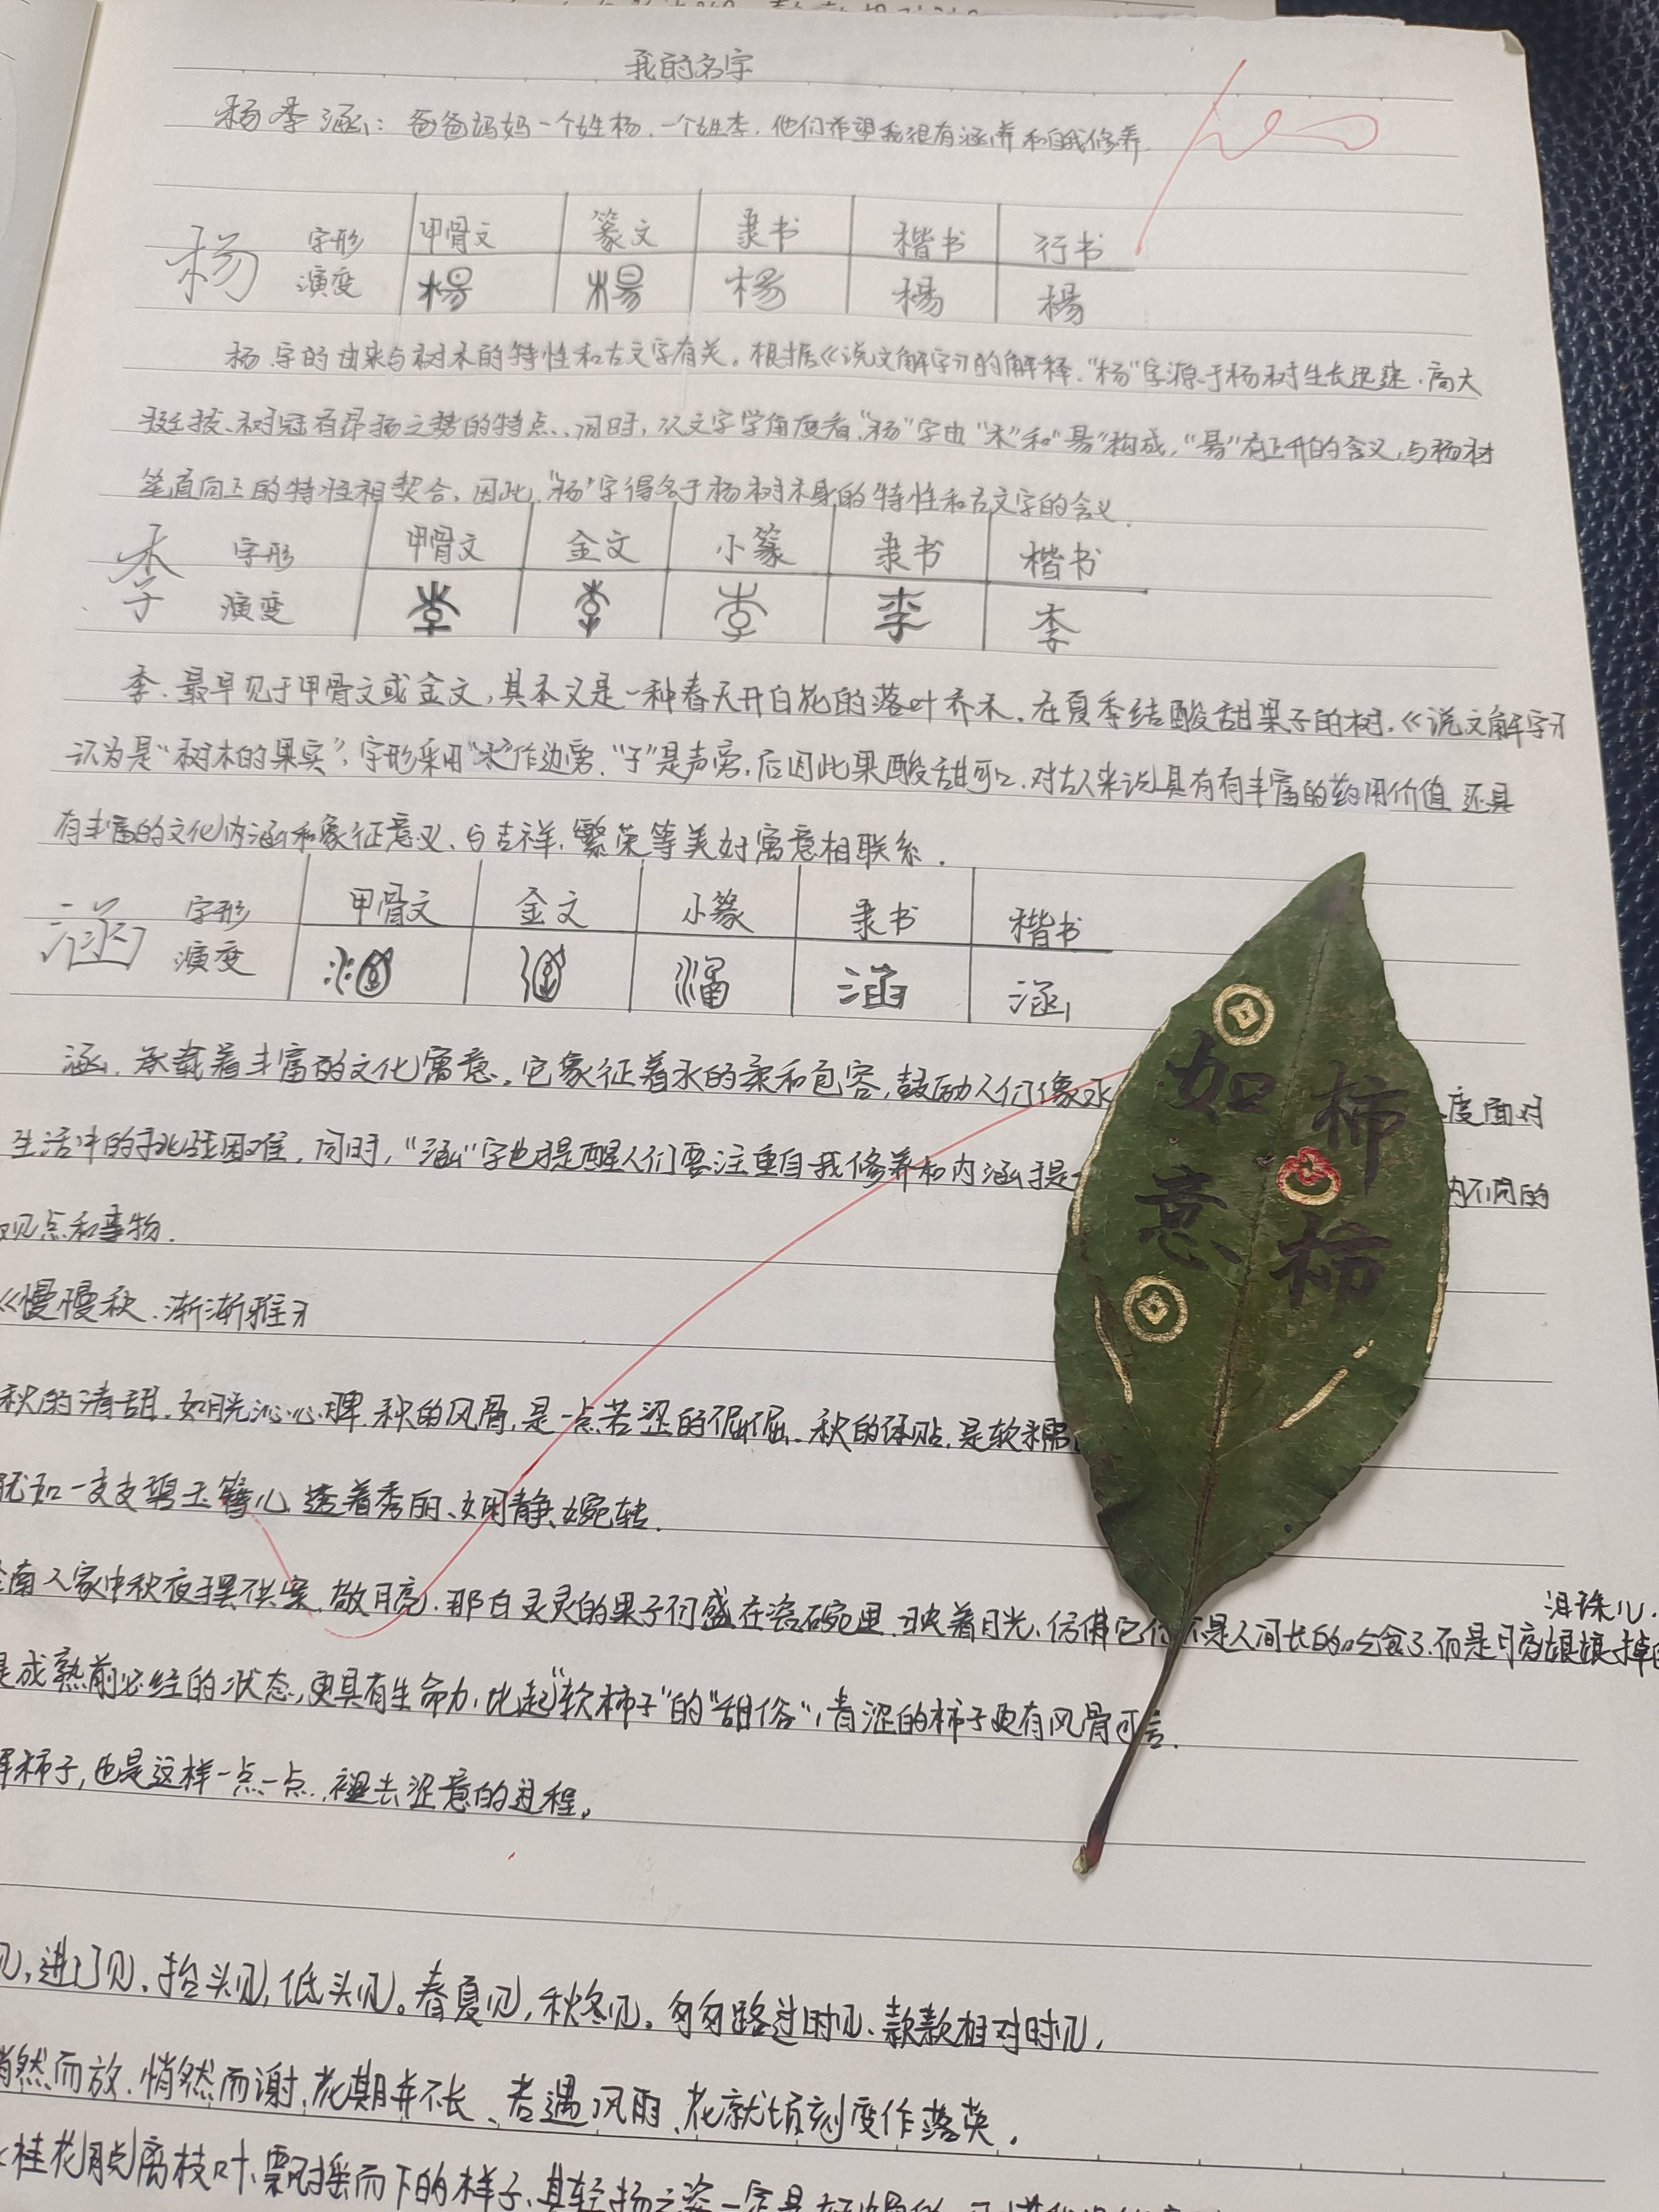 我的名字
杨李涵：爸爸妈妈一个姓杨、一个姓李，他们希望我很有涵养和自我修养.
杨 字形演变 甲骨文 篆文 隶书 楷书 行书
楊 楊 楊 楊 楊
杨.字的由来与树木的特性和古文字有关。根据《说文解字》的解释，"杨"字源于杨树生长迅速、高大
挺拔、树冠有昂扬之势的特点、同时，从文字学角度看，"杨"字由"木"和"昜"构成，"昜"有上升的含义，与杨树
笔直向上的特性相契合，因此"杨"字得名于杨树本身的特性和古文字的含义.
李 字形演变 甲骨文 金文 小篆 隶书 楷书
李 李 李 李 李
李.最早见于甲骨文或金文，其本义是一种春天开白花的落叶乔木，在夏季结酸甜果子的树，《说文解字》
认为是"树木的果实"，字形采用"木"作边旁，"子"是声旁，后因此果酸甜可口，对古人来说具有有丰富的药用价值 还具
有丰富的文化内涵和象征意义、与吉祥、繁荣等美好寓意相联系.
涵 字形演变 甲骨文 金文 小篆 隶书 楷书
涵 涵 涵 涵 涵
涵.承载着丰富的文化寓意。它象征着水的柔和包容，鼓励人们像水 度面对
生活中的挑战困难，同时，"涵"字也提醒人们要注重自我修养和内涵提 内不同的
观点和事物.
《慢慢秋、渐渐雅》
秋的清甜，如脘沁心脾，秋的风骨，是一点苦涩的倔倔、秋的体贴，是软糯
就如一支支碧玉簪儿 透着秀丽、娴静、婉转.
南人家中秋夜摆供案，敬月亮，那白灵灵的果子们盛在瓷碗里，映着月光，仿佛它们不是人间长的吃食了，而是月亮娘娘掉的
泪珠儿.
是成熟前必经的状态，更具有生命力，比起"软柿子"的"甜俗"，青涩的柿子更有风骨可言.
柿子，也是这样一点一点，褪去涩意的过程。
见，进门见、抬头见，低头见。春夏见，秋冬见。匆匆路过时见、款款相对时见，
悄然而放，悄然而谢，花期并不长、若遇风雨、花就顷刻度作落英.
桂花脱离枝叶、飘摇而下的样子，其轻扬之姿一定是
如 柿
意 柿